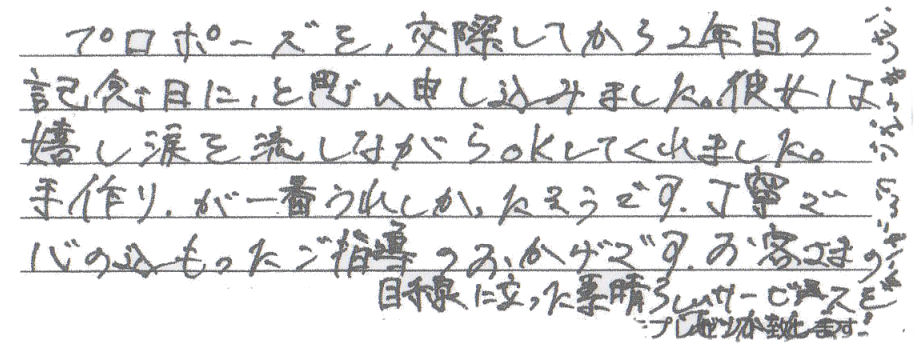 プロポーズを、交際してから2年目の
記念日に、と思い申し込みました。彼女は
嬉し涙を流しながらOKしてくれました。
手作り、が一番うれしかったそうです。丁寧で
心の込もったご指導のおかげです。お客さまの
目線に立った素晴らしいサービスを
プレゼント致します!